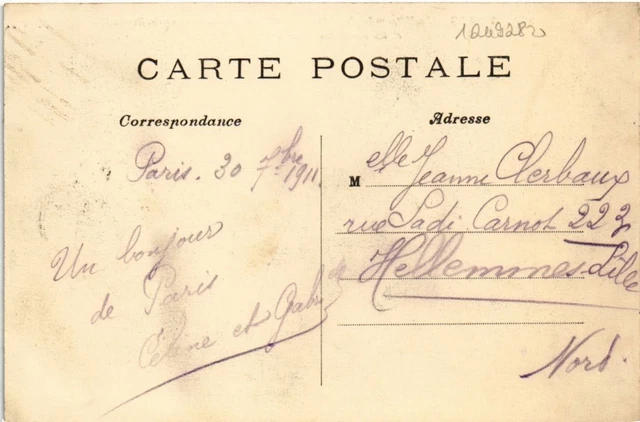 1249282
CARTE POSTALE
Correspondance
Adresse
Paris. 30 7bre 1911.
Un bonjour
de Paris
Céline et
Melle Jeanne Clerbaux
rue Sadi Carnot 223
Hellemmes-Lille
Nord.